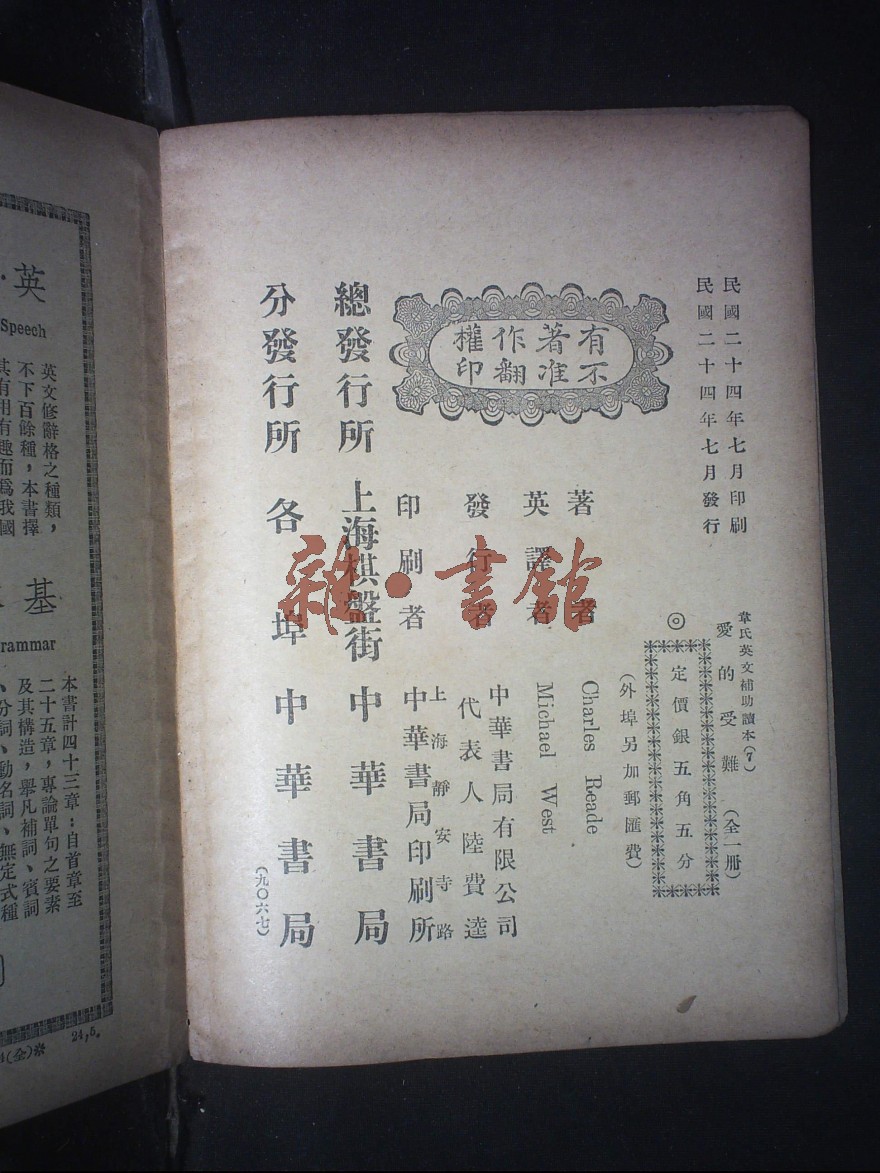 民國二十四年七月印刷
民國二十四年七月發行
韋氏英文補助讀本(7)
愛的受難(全一冊)
◎定價銀五角五分
(外埠另加郵匯費)
有不著准作翻權印
著者 Charles Reade
英譯者 Michael West
發行者 中華書局有限公司
代表人陸費逵
印刷者 上海靜安寺路
中華書局印刷所
總發行所 上海棋盤街 中華書局
分發行所 各埠 中華書局
(九〇六七)
雜·書館
英
Speech
英文修辭格之種類,
不下百餘種,本書擇
其有用有趣而爲我國
基
rammar
本書計四十三章:自首章至
二十五章,專論單句之要素
及其構造,舉凡補詞、賓詞
、分詞、動名詞、無定式種
(全)*
24,5.